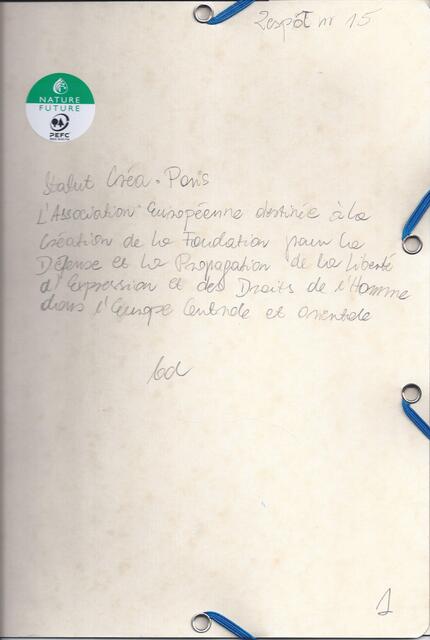 Zespół nr 15
NATURE
FUTURE
PEFC
Statut Créa - Paris
L'Association Européenne destinée à la
Création de la Fondation pour la
Défense et la Propagation de la Liberté
d'Expression et des Droits de l'Homme
dans l'Europe Centrale et Orientale
bd
1